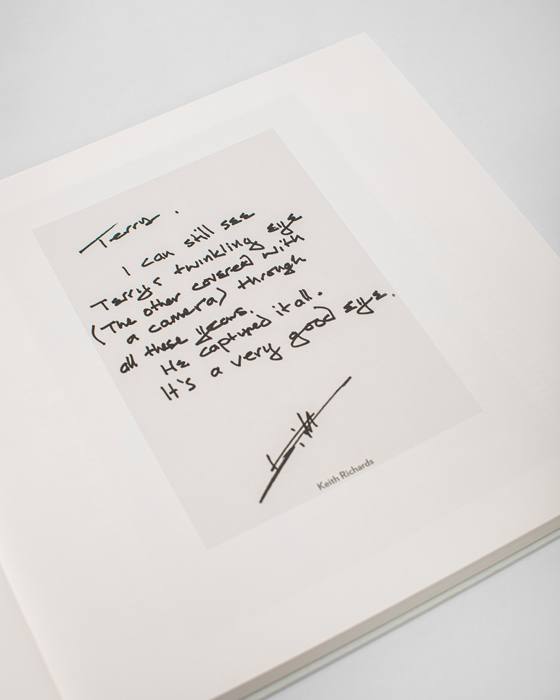 Terry.
I can still see
Terrys twinkling eye
(The other covered with
a camera) through
all these years.
He captured it all.
It's a very good eye.
Keith
Keith Richards